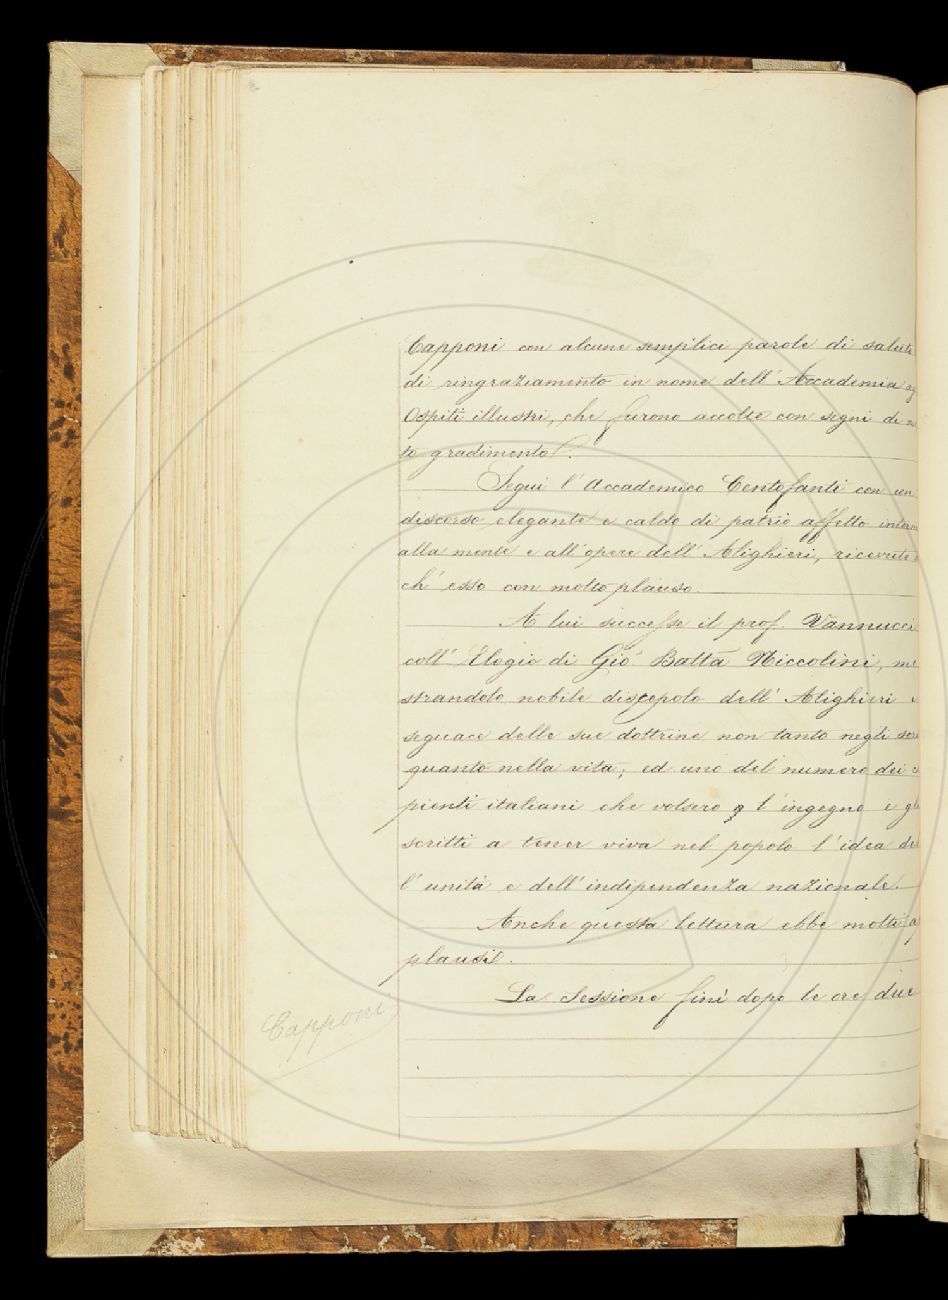 Capponi con alcune semplici parole di salute
di ringraziamento in nome dell' Accademia ag
Ospiti illustri, che furono accolte con segni di m
to gradimento.
Seguì l' Accademico Centofanti con un
discorso elegante e caldo di patrio affetto intorn
alla mente e all' opere dell' Alighieri, ricevuto
ch' esso con molto plauso.
A lui successe il prof. Vannucci
coll' Elogio di Gio. Batta Niccolini, mo
strandolo nobile discepolo dell' Alighieri e
seguace delle sue dottrine non tanto negli scr
quanto nella vita; ed uno del numero dei s
pienti italiani che volsero l' ingegno e gl
scritti a tener viva nel popolo l' idea del
l' unità e dell' indipendenza nazionale.
Anche questa lettura ebbe molti a
plausi.
La Sessione finì dopo le ore due
Capponi